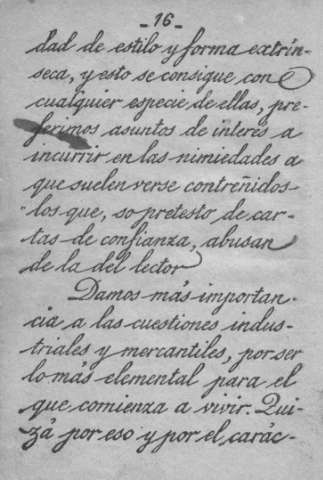 -16-
dad de estilo y forma extrín-
seca, y esto se consigue con
cualquier especie de ellas, pre-
ferimos asuntos de interés a
incurrir en las nimiedades a
que suelen verse contreñidos
los que, so pretesto de car-
tas de confianza, abusan
de la del lector
Damos más importan-
cia a las cuestiones indus-
triales y mercantiles, por ser
lo más elemental para el
que comienza a vivir. Qui-
zá por eso y por el carác-